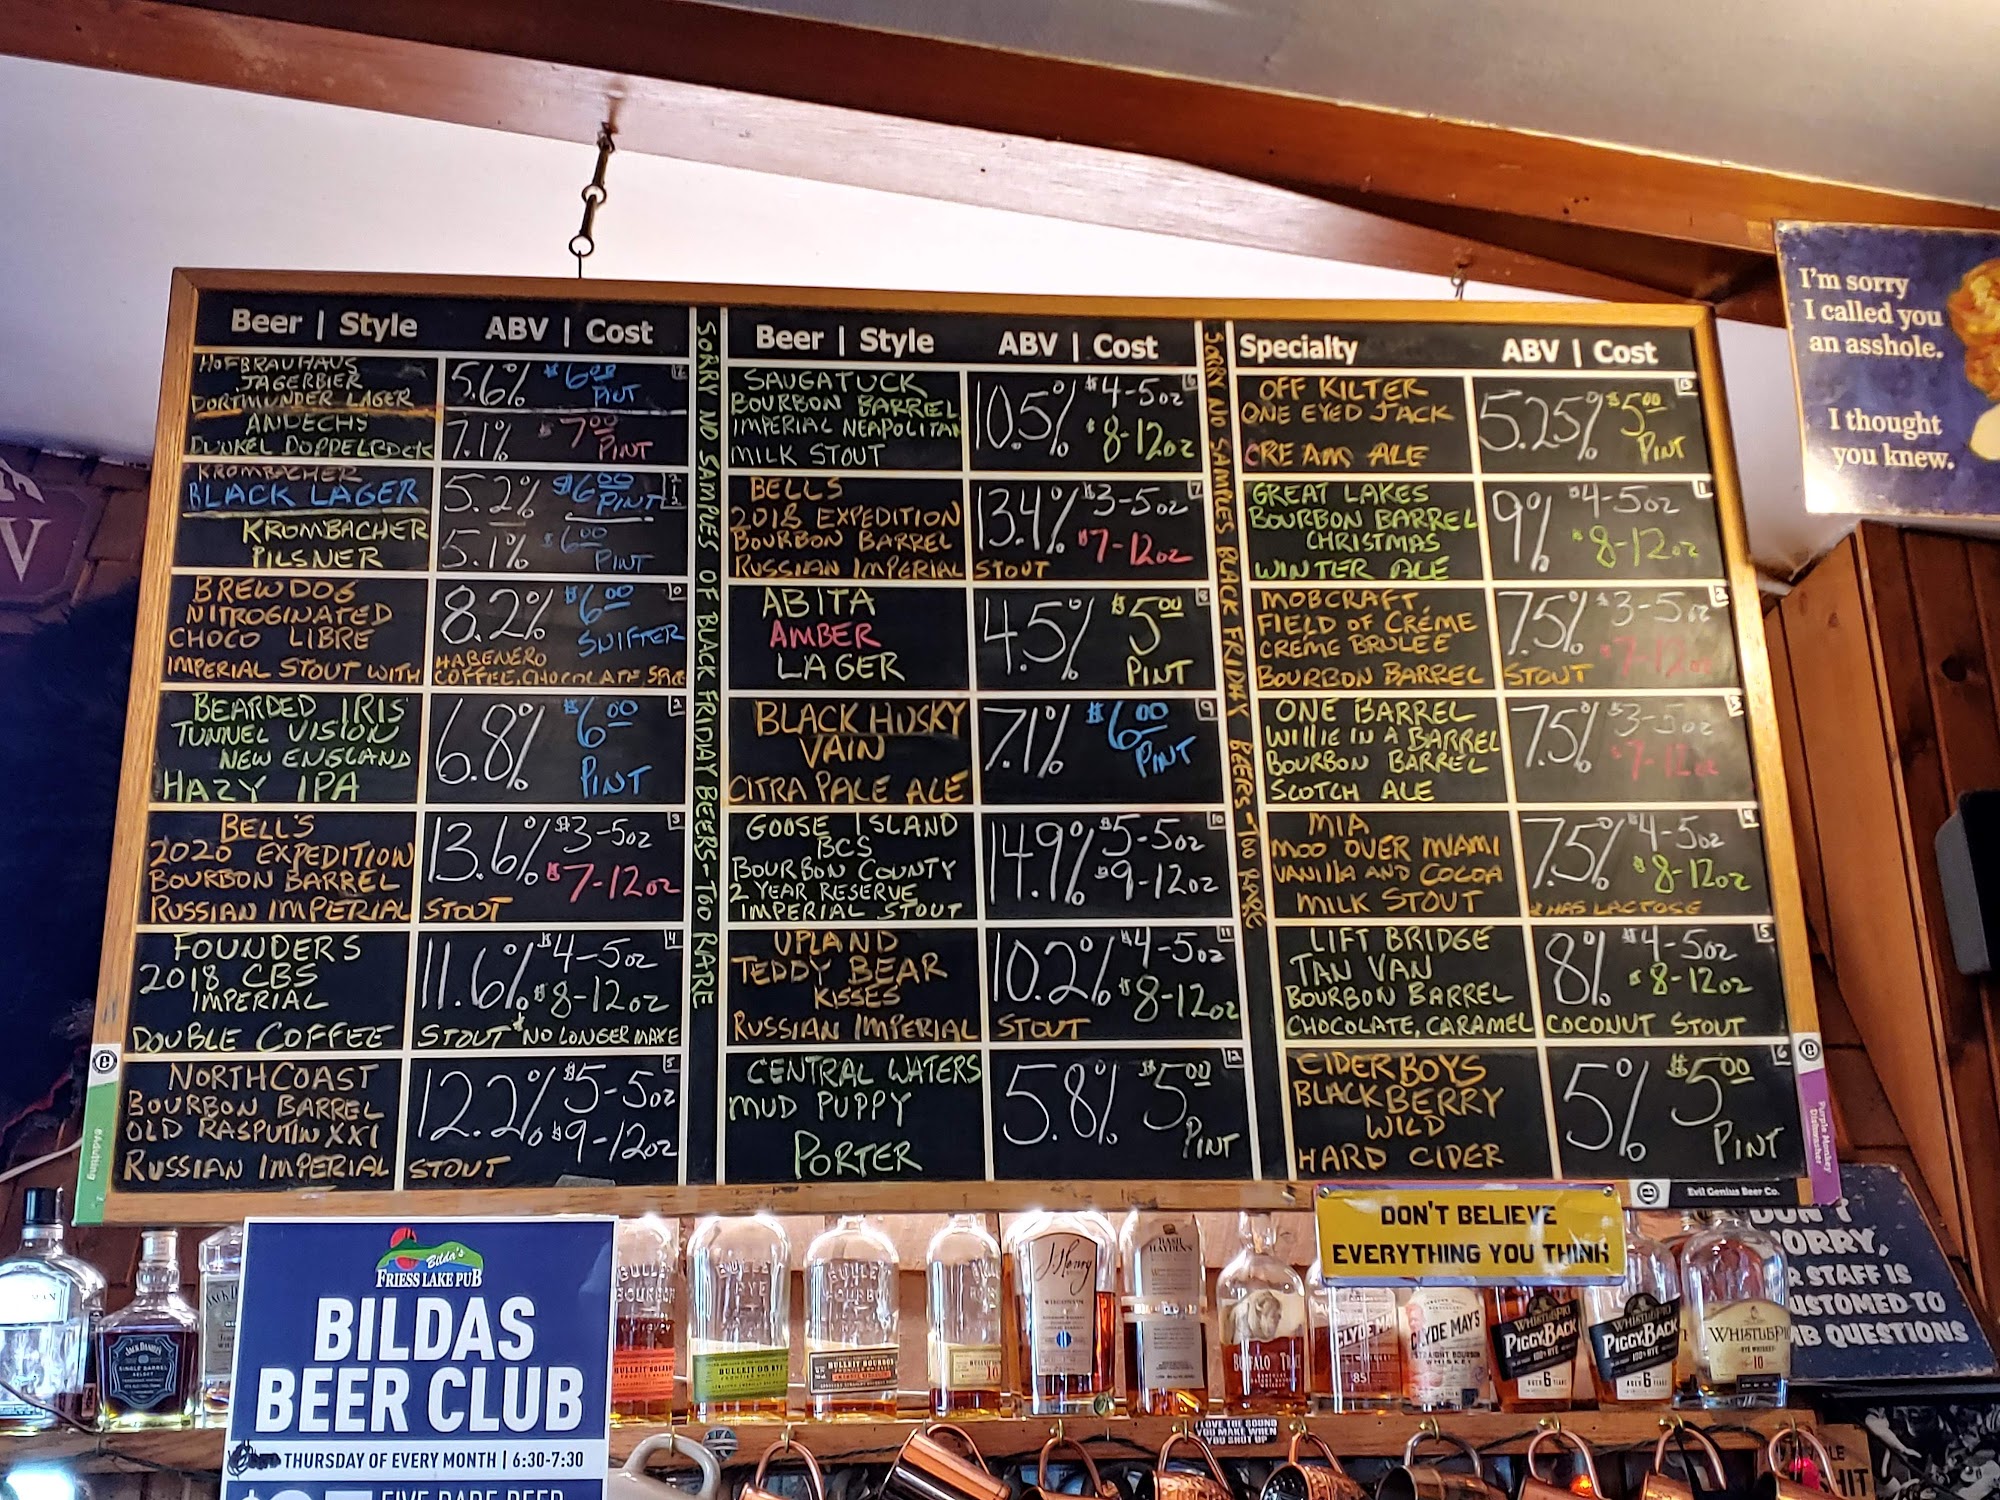 Beer | Style ABV | Cost
HOFBRAUHAUS
JAGERBIER
DORTMUNDER LAGER
5.6% $6.00
PINT
ANDECHS
DUNKEL DOPPELBOCK
7.1% $7.00
PINT
KROMBACHER
BLACK LAGER
5.2% $6.00
PINT
KROMBACHER
PILSNER
5.1% $6.00
PINT
BREWDOG
NITROGINATED
CHOCO LIBRE
IMPERIAL STOUT WITH
8.2% $6.00
SNIFTER
HABENERO
COFFEE, CHOCOLATE, SPICE
BEARDED IRIS
TUNNEL VISION
NEW ENGLAND
HAZY IPA
6.8% $6.00
PINT
BELL'S
2020 EXPEDITION
BOURBON BARREL
RUSSIAN IMPERIAL STOUT
13.6% $3-5oz
$7-12oz
FOUNDERS
2018 CBS
IMPERIAL
DOUBLE COFFEE STOUT *NO LONGER MAKE
11.6% $4-5oz
$8-12oz
NORTHCOAST
BOURBON BARREL
OLD RASPUTIN XXI
RUSSIAN IMPERIAL STOUT
12.2% $5-5oz
$9-12oz
SORRY NO SAMPLES OF BLACK FRIDAY BEERS-TOO RARE
Beer | Style ABV | Cost
SAUGATUCK
BOURBON BARREL
IMPERIAL NEAPOLITAN
MILK STOUT
10.5% $4-5oz
$8-12oz
BELLS
2018 EXPEDITION
BOURBON BARREL
RUSSIAN IMPERIAL STOUT
13.4% $3-5oz
$7-12oz
ABITA
AMBER
LAGER
4.5% $5.00
PINT
BLACK HUSKY
VAIN
CITRA PALE ALE
7.1% $6.00
PINT
GOOSE ISLAND
BCS
BOURBON COUNTY
2 YEAR RESERVE
IMPERIAL STOUT
14.9% $5-5oz
$9-12oz
UPLAND
TEDDY BEAR
KISSES
RUSSIAN IMPERIAL STOUT
10.2% $4-5oz
$8-12oz
CENTRAL WATERS
MUD PUPPY
PORTER
5.8% $5.00
PINT
SORRY NO SAMPLES BLACK FRIDAY BEERS-TOO RARE
Specialty ABV | Cost
OFF KILTER
ONE EYED JACK
CREAM ALE
5.25% $5.00
PINT
GREAT LAKES
BOURBON BARREL
CHRISTMAS
WINTER ALE
9% $4-5oz
$8-12oz
MOBCRAFT
FIELD OF CRÉME
CREME BRULEE
BOURBON BARREL STOUT
7.5% $3-5oz
$7-12oz
ONE BARREL
WIllIE IN A BARREL
BOURBON BARREL
SCOTCH ALE
7.5% $3-5oz
$7-12oz
MIA
MOO OVER MIAMI
VANIllA AND COCOA
MILK STOUT
7.5% $4-5oz
$8-12oz
*HAS LACTOSE
LIFT BRIDGE
TAN VAN
BOURBON BARREL
CHOCOLATE, CARAMEL COCONUT STOUT
8% $4-5oz
$8-12oz
CIDERBOYS
BLACKBERRY
WILD
HARD CIDER
5% $5.00
PINT
Purple Monkey
Dishwasher
Evil Genius Beer Co.
#Adulting
I'm sorry
I called you
an asshole.
I thought
you knew.
DON'T BELIEVE
EVERYTHING YOU THINK
DON'T
STAFF IS
QUESTIONS
Bilda's
FRIESS LAKE PUB
BILDAS
BEER CLUB
THURSDAY OF EVERY MONTH | 6:30-7:30
JACK DANIEL'S
SINGLE BARREL
BULLEIT BOURBON
BULLEIT RYE
BULLEIT BOURBON
J. Henry
BASIL
HAYDEN'S
CLYDE MAY'S
STRAIGHT BOURBON
WHISKEY
WHISTLEPIG
PIGGYBACK
100% RYE
AGED 6
WHISTLEPIG
PIGGYBACK
100% RYE
AGED 6
WHISTLEPIG
RYE WHISKEY
10
I LOVE THE SOUND
YOU MAKE WHEN
YOU SHUT UP